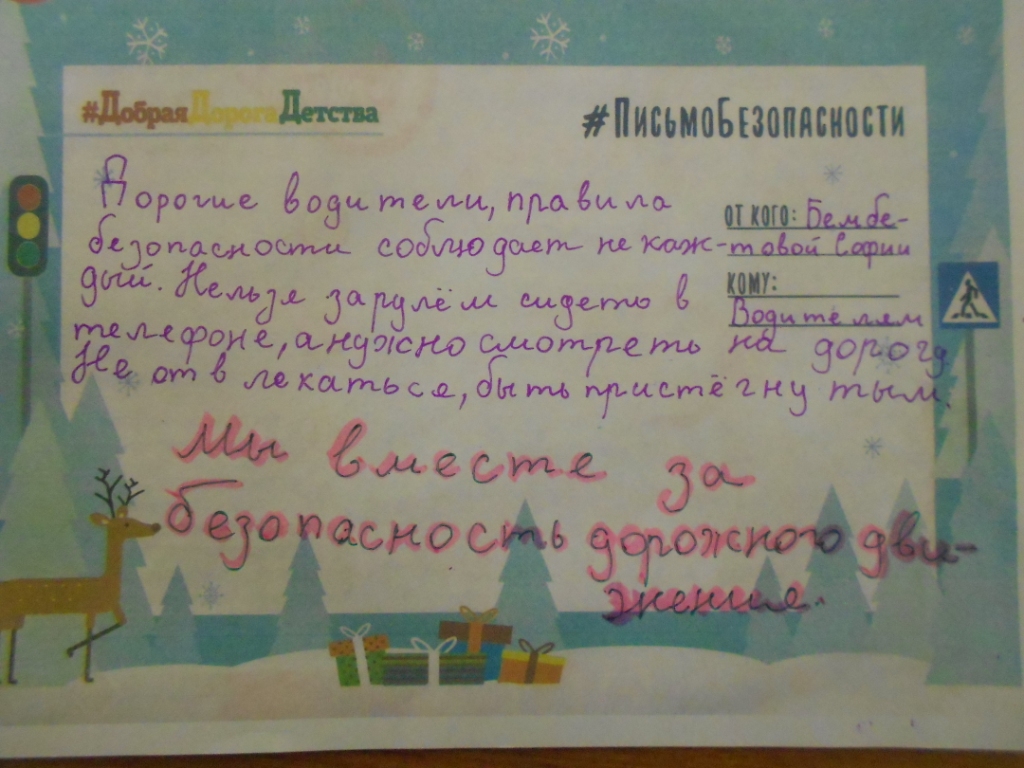 #ДобраяДорогаДетства
#ПИСЬМОБЕЗОПАСНОСТИ
Дорогие водители, правила
безопасности соблюдает не каж-
дый. Нельзя за рулём сидеть в
телефоне, а нужно смотреть на дорогу.
Не отвлекаться, быть пристёгнутым.
ОТ КОГО: Бембе-
товой Софии
КОМУ:
Водителям
Мы вместе за
безопасность дорожного дви-
жения.